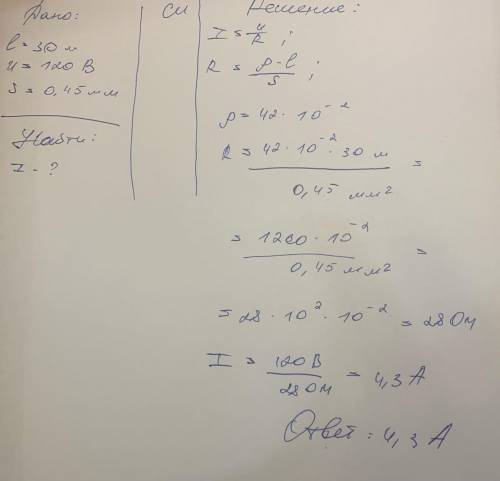 Дано:
l = 30 м
u = 120 В
S = 0,45 мм
Найти:
I - ?
Си
Решение:
I = u/R ;
R = ρ·l/S ;
ρ = 42 · 10⁻²
R = 42 · 10⁻² · 30 м / 0,45 мм² =
= 1260 · 10⁻² / 0,45 мм² =
= 28 · 10² · 10⁻² = 28 Ом
I = 120 В / 28 Ом = 4,3 А
Ответ: 4,3 А